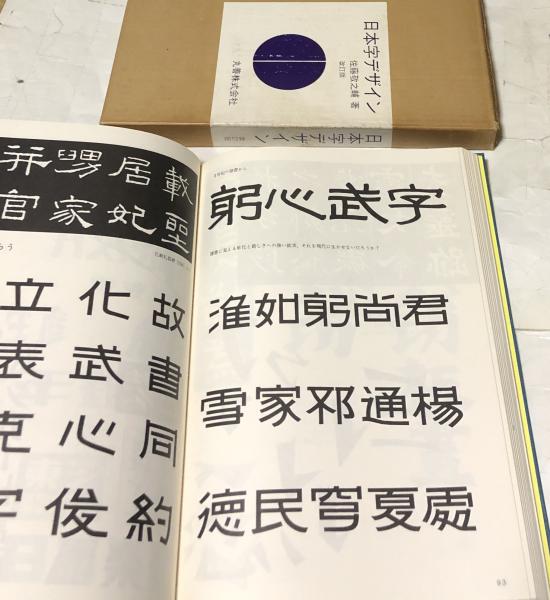 日本字デザイン
佐藤敬之輔 著
改訂版
丸善株式会社
日本字デザイン
載居舅并
聖妃家官
躬心武字
淮如躬尚君
雪家邓通楊
徳民穹夏處
故化立
書武表
同心克
約俊字
93